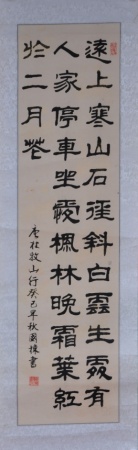 遠上寒山石徑斜白雲生處有
人家停車坐愛楓林晚霜葉紅
於二月花
唐杜牧山行癸巳早秋國棟書